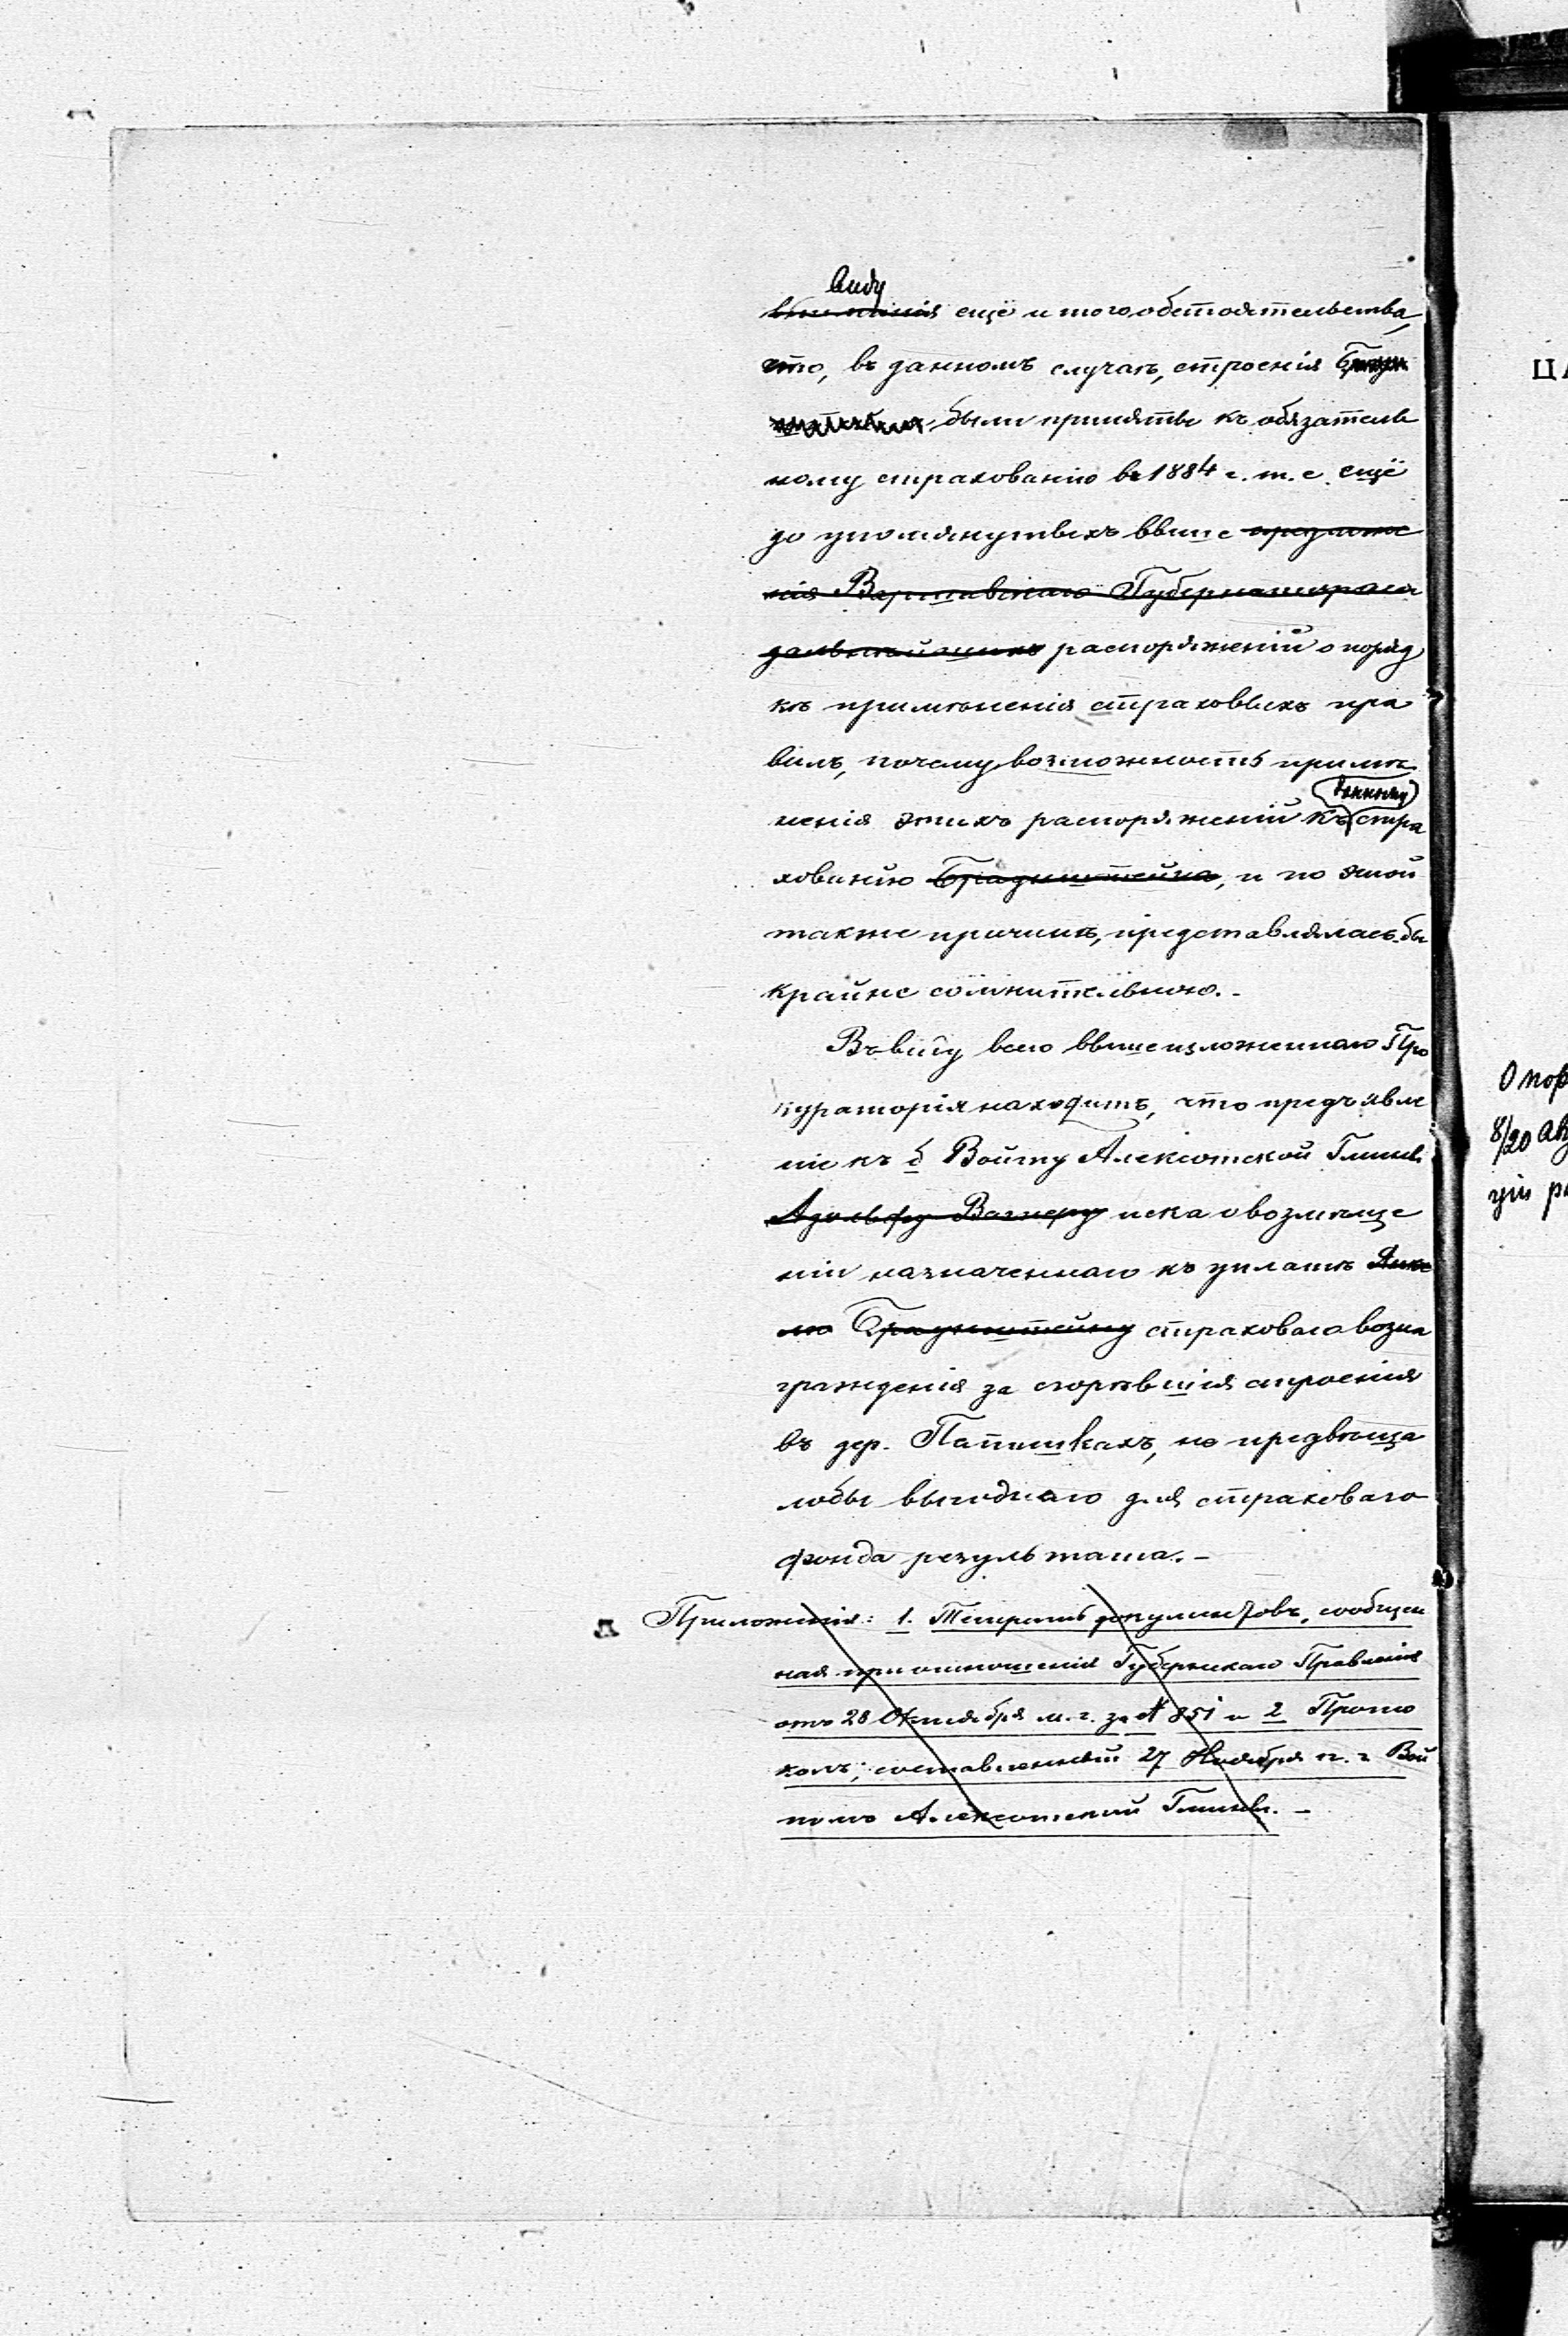 виду
вниманія ещё и того обстоятельства,
что, въ данномъ случаѣ, строенія Браун
штейна были приняты къ обязатель
ному страхованію въ 1884 г. т. е. ещё
до упомянутыхъ выше предложе
нія Варшавскаго Губернатора и
дальнѣйшихъ распоряженій о поряд
кѣ примѣненія страховыхъ пра
вилъ, почему возможность примѣ
данному
ненія этихъ распоряженій къ стра
хованію Браунштейна, и по этой
также причинѣ, представлялась бы
крайне сомнительною. -
Въ виду всего вышеизложеннаго Про
кураторія находитъ, что предъявле
ніе къ б Войту Алексотской Гмины
Адольфу Вагнеру иска о возмѣще
ніи назначеннаго къ уплатѣ Янке
лю Браунштейну страховаго возна
гражденія за сгорѣвшія строенія
въ дер. Папишкахъ, не предвѣща
ло бы выгоднаго для страховаго
фонда результата. -
Приложенія: 1. Тетрадь документовъ, сообщен
ная при отношеніи Губернскаго Правленія
отъ 28 Октября м. г. за № 851 и 2 Прото
колъ, составленный 27 Ноября т. г. Вой
томъ Алексотской Гмины. -
ЦА
О пор
8/20 Ав